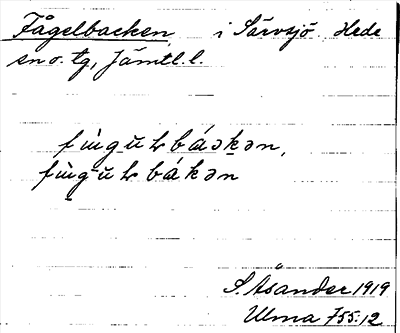 Fågelbacken i Särvsjö Hede
sn o. tg, Jämtl. l.
fùgŭɫbáəkən,
fùgŭɫbákən
S. Åsander 1919
Ulma 755:12